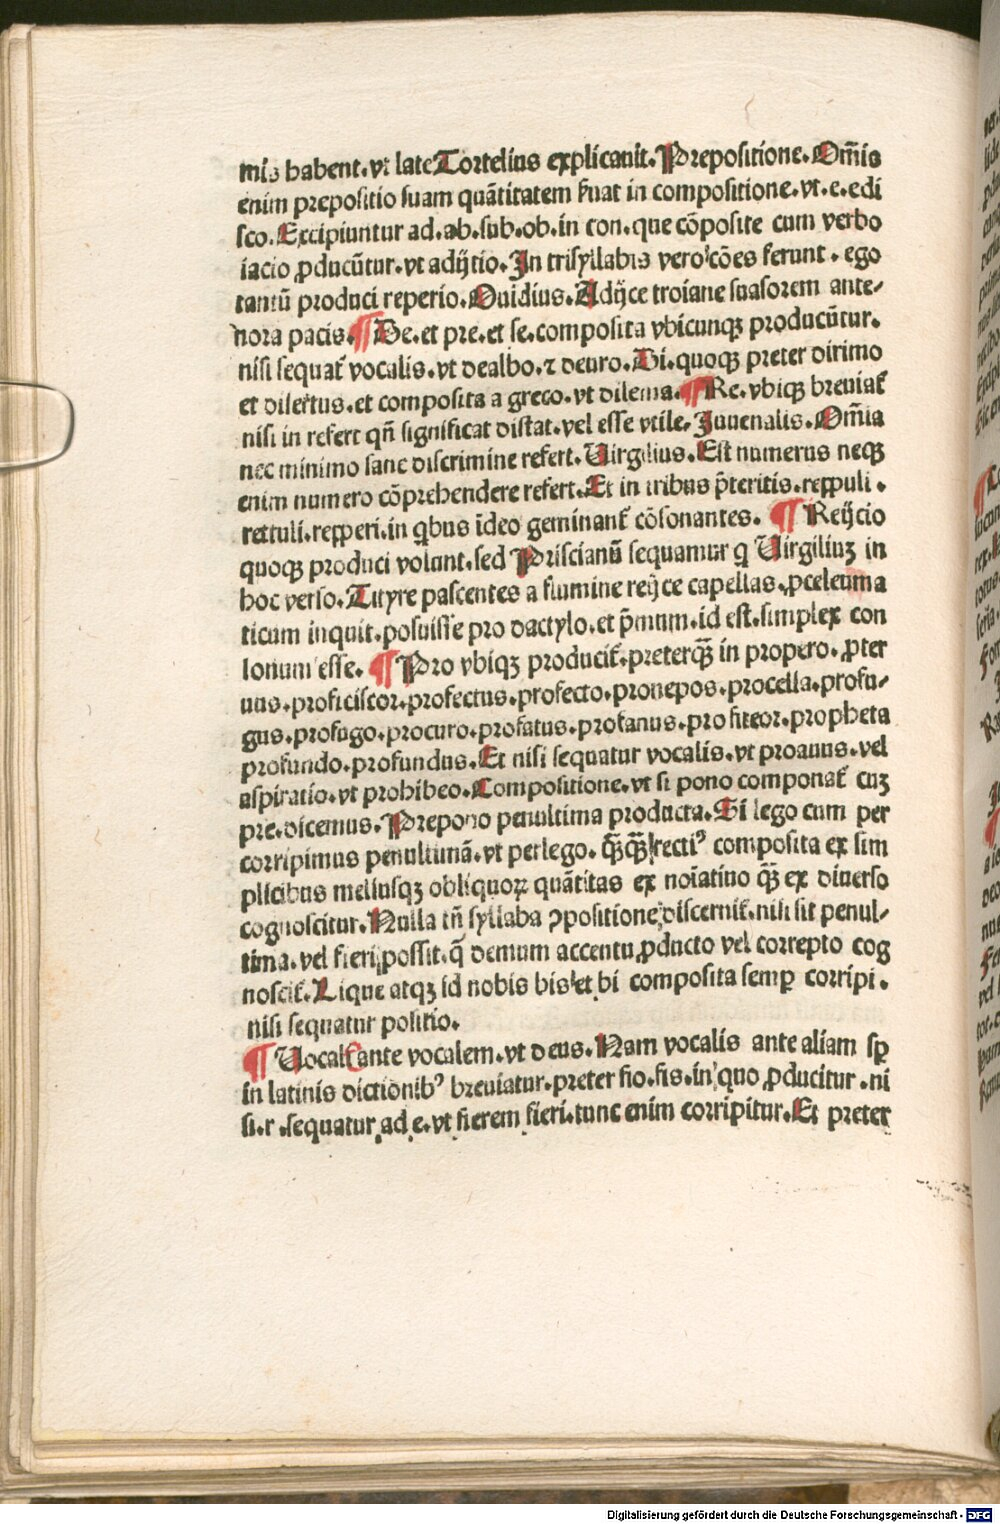 mis habent.vt late Tortelius explicauit.Prepositione.Om̃is
enim prepositio suam quãtitatem ẜuat in compositione.vt.e.edi
sco.Excipiuntur ad.ab.sub.ob.in con.que cõposite cum verbo
iacio ꝓducũtur.vt adijtio.In trisyllabis vero cões ferunt.ego
tantũ produci reperio.Ouidius.Adijce troiane suasorem ante⸗
nora pacis.¶De.et pre.et se.composita vbicunqꝫ producũtur.
nisi sequat᷑ vocalis.vt dealbo.⁊ deuro.Di.quoqꝫ preter dirimo
et disertus.et composita a greco.vt dilema.¶Re.vbiqꝫ breuiat᷑
nisi in refert qñ significat distat.vel esse vtile.Juuenalis.Om̃ia
nec minimo sane discrimine refert.Uirgilius.Est numerus neqꝫ
enim numero cõprehendere refert.Et in tribus p̃teritis.reppuli.
rettuli.repperi.in qͥbus ideo geminant᷑ cõsonantes. ¶Reijcio
quoqꝫ produci volunt.sed Priscianũ sequamur qͥ Uirgiliuꝫ in
hoc verso.Tityre pascentes a flumine reijce capellas.ꝓceleuma
ticum inquit.posuisse pro dactylo.et p̃mum.id est.simplex con
sonum esse. ¶Pro vbiqꝫ producit᷑.preterqꝫ̃ in propero.ꝓter
uus.proficiscor.profectus.profecto.pronepos.procella.profu⸗
gus.profugo.procuro.profatus.profanus.profiteor.propheta
profundo.profundus.Et nisi sequatur vocalis.vt proauus.vel
aspiratio.vt prohibeo.Compositione.vt si pono componat᷑ cuꝫ
pre.dicemus.Prepono penultima producta.Si lego cum per
corripimus penultimã.vt perlego.qꝫ̃qꝫ̃ rectiꝰ composita ex sim
plicibus meliusqꝫ obliquoꝝ quãtitas ex noĩatiuo qꝫ̃ ex diuerso
cognoscitur.Nulla tñ syllaba ꝯpositione discernit᷑.nisi sit penul⸗
tima.vel fieri possit.q̃ demum accentu ꝓducto vel correpto cog
noscit᷑.Lique atqꝫ id nobis bis et bi composita semꝑ corripi.
nisi sequatur positio.
¶Uocalis ante vocalem.vt deus.Nam vocalis ante aliam sꝑ
in latinis dictionibꝰ breuiatur.preter fio.fis.in quo ꝓducitur.ni
si.r.sequatur ad e.vt fierem fieri.tunc enim corripitur.Et preter
Digitalisierung gefördert durch die Deutsche Forschungsgemeinschaft - DFG